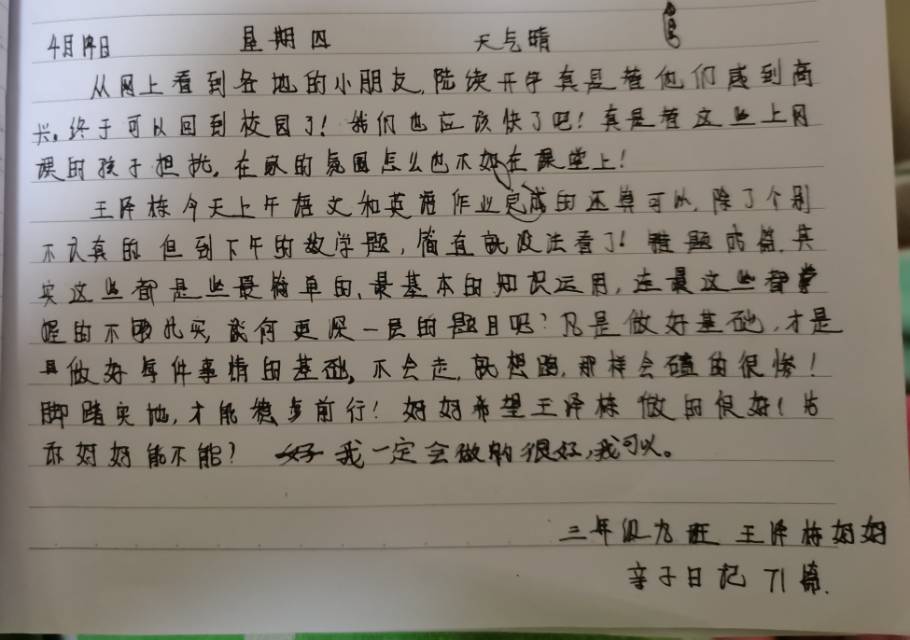 4月14日 星期四 天气晴
从网上看到各地的小朋友,陆续开学真是替他们感到高
兴。终于可以回到校园了!我们也应该快了吧!真是替这些上网
课的孩子担忧。在家的氛围怎么也不如在课堂上!
王泽栋今天上午语文和英语作业完成的还算可以,除了个别
不认真的 但到下午的数学题,简直就没法看了!难题成篇,其
实这些都是些最简单的、最基本的知识运用,连最这些都掌
握的不够扎实,谈何更深一层的题目呢?凡是做好基础,才是
做好每件事情的基础,不会走,就想跑,那样会磕的很惨!
脚踏实地,才能稳步前行!妈妈希望王泽栋做的很好!告
诉妈妈能不能? 我一定会做的很好,我可以。
三年级九班 王泽栋妈妈
亲子日记 71篇.